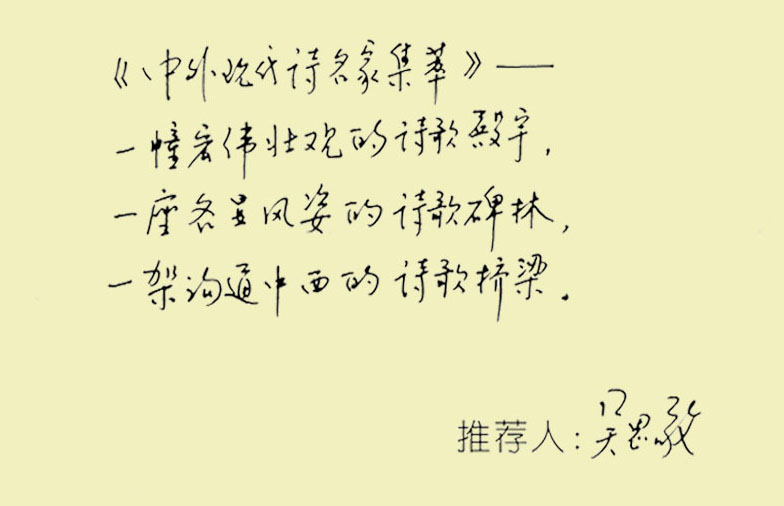 《中外现代诗名家集萃》——
一幢宏伟壮观的诗歌殿宇，
一座各呈风姿的诗歌碑林，
一架沟通中西的诗歌桥梁。
推荐人：吴思敬